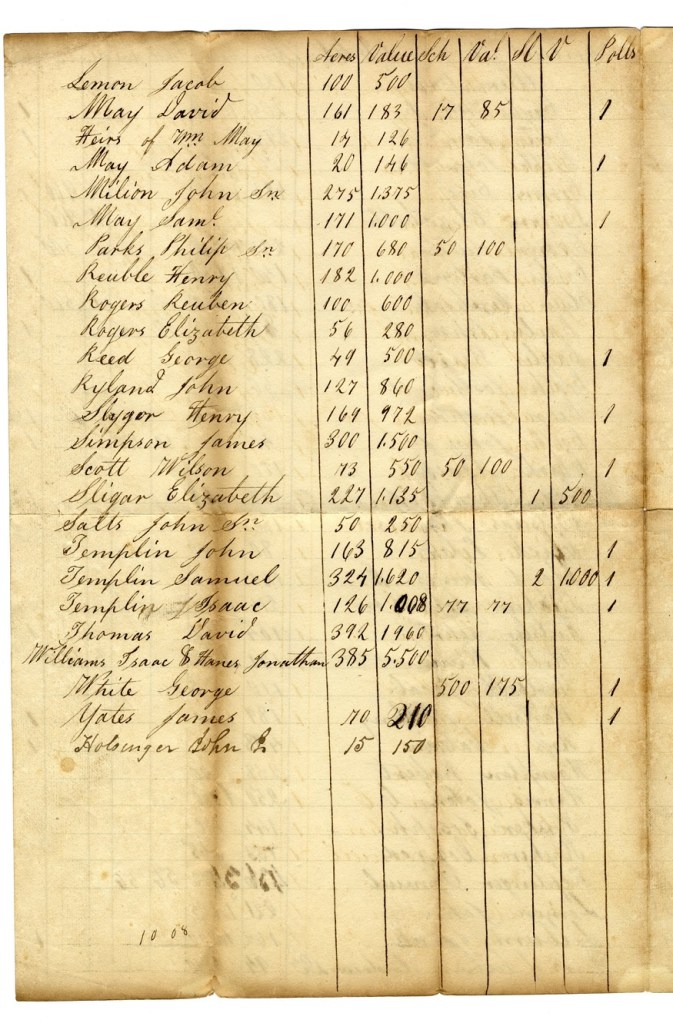 Acres Value Sch Val. Sl V Polls
Lemon Jacob 100 500
May David 161 183 17 85 1
Heirs of Wm May 17 126
May Adam 20 146 1
Milion John Snr 275 1.375
May Saml. 171 1.000 1
Parks Philip Sr 170 680 50 100
Reuble Henry 182 1.000
Rogers Reuben 100 600
Rogers Elizabeth 56 280
Reed George 49 500 1
Ryland John 127 860
Slyger Henry 169 972 1
Simpson James 300 1.500
Scott Wilson 73 550 50 100 1
Sligar Elizabeth 227 1.135 1 500
Salts John Sr 50 250
Templin John 163 815 1
Templin Samuel 324 1.620 2 1.000 1
Templin Isaac 126 1.008 77 77 1
Thomas David 392 1960
Williams Isaac & Hanes Jonathan 385 5.500
White George 500 175 1
Yates James 70 210 1
Holsinger John 15 150
10 08